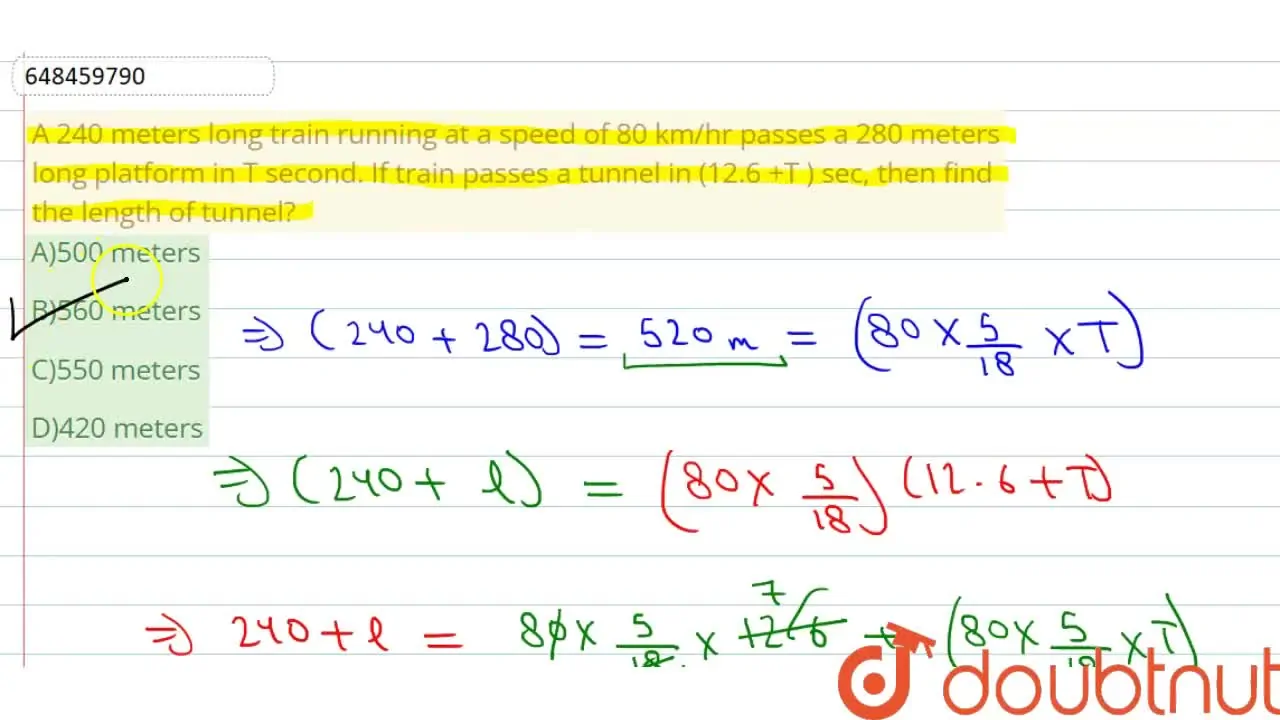 648459790
A 240 meters long train running at a speed of 80 km/hr passes a 280 meters
long platform in T second. If train passes a tunnel in (12.6 +T ) sec, then find
the length of tunnel?
A)500 meters
B)560 meters
C)550 meters
D)420 meters
⇒ (240 + 280) = 520 m = (80 × 5/18 × T)
⇒ (240 + l) = (80 × 5/18) (12.6 + T)
⇒ 240 + l = 80 × 5/18 × 12.6 + (80 × 5/18 × T)
7
doubtnut